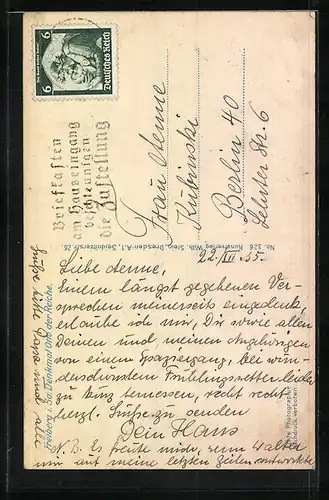 6 Deutsches Reich 6
Briefkasten
am Hauseingang
beschleunigen
die Zustellung
Frau Aenne
Kubinski
Berlin 40
Str. 6
Nr. 326 Kunstverlag Wilh. Stein, Dresden-A.1, Seidnitzerstr. 26
22./III. 35.
Liebe Aenne,
Einem längst gegebenen Ver-
sprechen meinerseits eingedenk,
erlaube ich mir, Dir sowie allen
Deinen und meinen Angehörigen
von einem Spaziergang, bei wun-
derschönstem Frühlingswetter leider
zu kurz bemessen, recht recht
herzl. Grüße zu senden
Dein Hans
N.B. Es freute mich, wenn Walter
mir auf meine letzten Zeilen antwortete
Grüße bitte Papa und alle
Freiberg i. Sa. Denkmal Otto der Reiche.